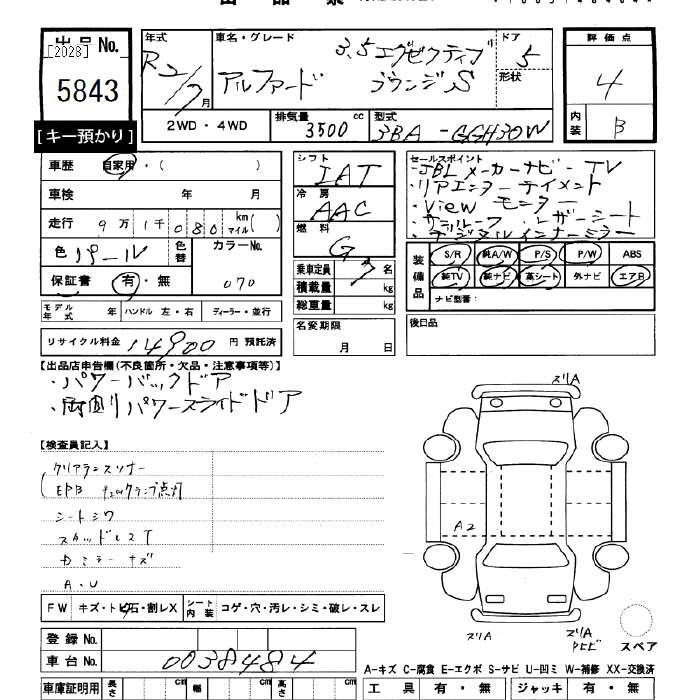 出品票
[2028]
出品 No.
5843
[キー預かり]
年式 R2/7月
車名・グレード アルファード 3.5エグゼクティブラウンジS
ドア 5
形状
評価点 4
内装 B
2WD・4WD
排気量 3500 cc
型式 3BA-GGH30W
車歴 自家用・( )
車検 年 月
走行 9万1千080 km マイル ( )
色 パール 色替
カラーNo. 070
保証書 有・無
モデル年式 年 ハンドル 左・右 ディーラー・並行
リサイクル料金 14900 円 預託済
シフト IAT
冷房 AAC
燃料 G
乗車定員 7 名
積載量 kg
総重量 kg
名変期限
月 日
セールスポイント
・JBLメーカーナビ・TV
・リアエンターテイメント
・Viewモニター
・サンルーフ・レザーシート
・デジタルインナーミラー
装備品
S/R 純A/W P/S P/W ABS
純TV 純ナビ 革シート 外ナビ エアB
ナビ型番:
後日品
【出品店申告欄(不良箇所・欠品・注意事項等)】
・パワーバックドア
・両側パワースライドドア
【検査員記入】
クリアランスソナー
EPB チェックランプ点灯
シートシワ
スカッフ
ミラーキズ
A・U
FW キズ・トビ石・割レX
シート内装 コゲ・穴・汚レ・シミ・破レ・スレ
登録 No.
車台 No. 0038484
車庫証明用 長さ cm 幅 cm 高さ cm
スリA
A2
スリA
スリA
スペア
A-キズ C-腐食 E-エクボ S-サビ U-凹ミ W-補修 XX-交換済
工具 有・無 ジャッキ 有・無